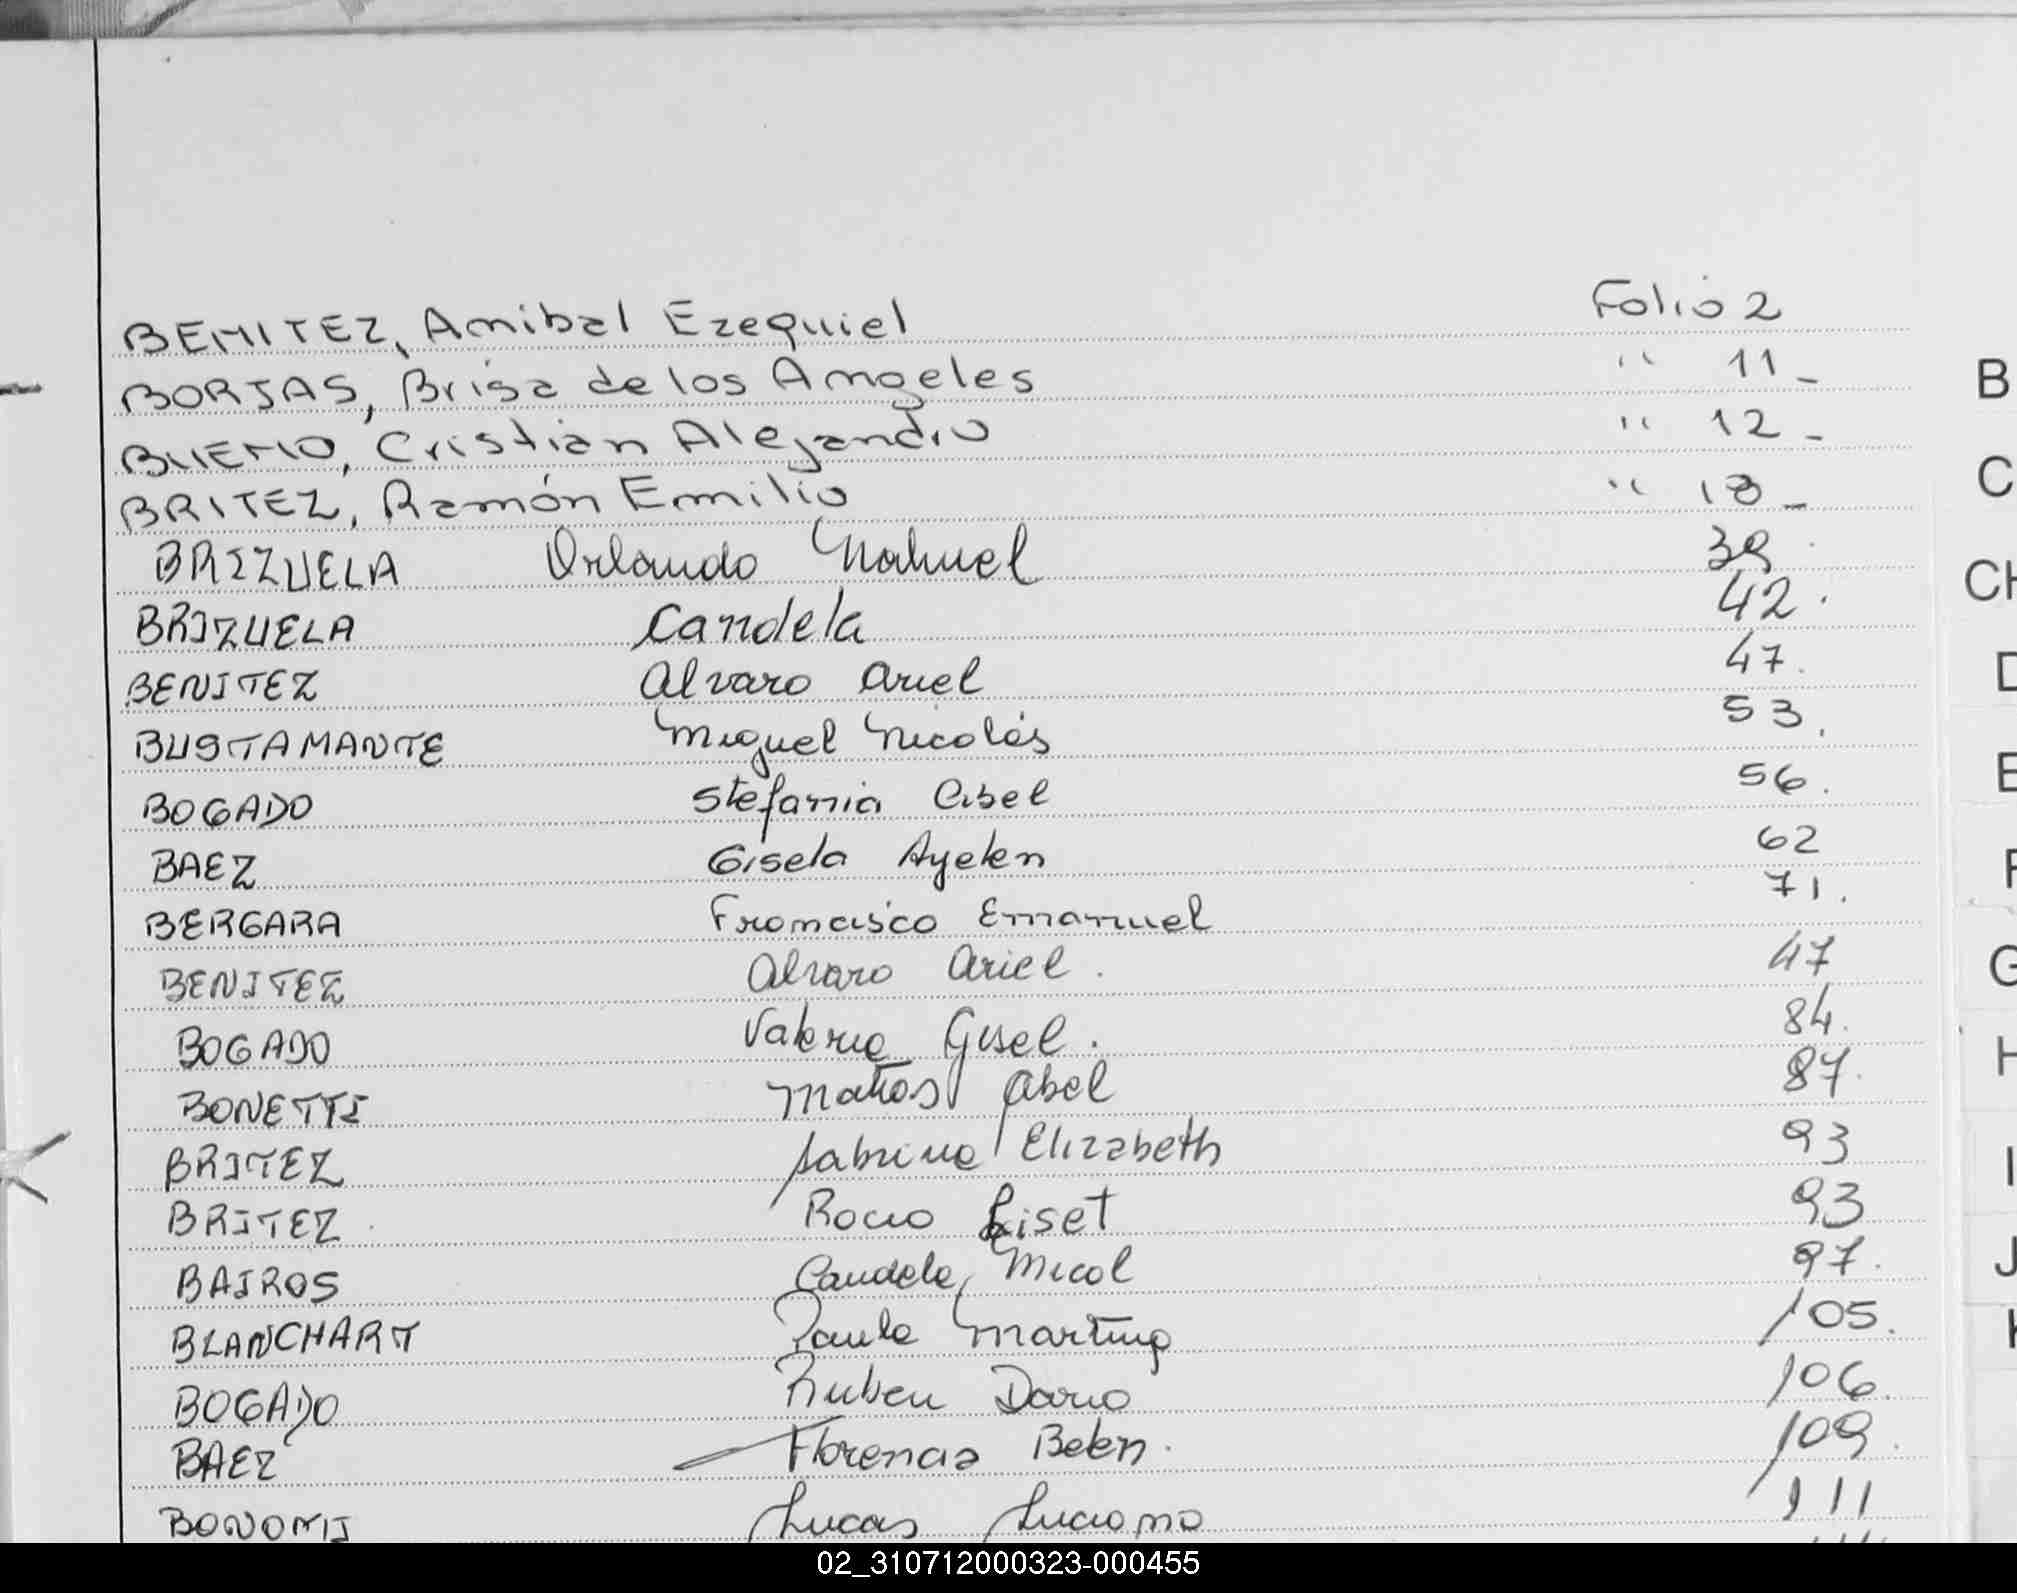 BENITEZ, Anibal Ezequiel Folio 2
BORJAS, Brisa de los Angeles " 11 -
BUENO, Cristian Alejandro " 12 -
BRITEZ, Ramón Emilio " 18 -
BRIZUELA Orlando Nahuel 39
BRIZUELA Candela 42.
BENITEZ Alvaro Ariel 47.
BUSTAMANTE Miguel Nicolás 53.
BOGADO Stefania 56.
BAEZ Gisela Ayelen 62
BERGARA Francisco Emanuel 71.
BENITEZ Alvaro Ariel. 47
BOGADO Valeria Gisel. 84.
BONETTI Matias Abel 87.
BRITEZ Sabrina Elizabeth 93
BRITEZ. Rocio Liset 93
BAIROS Candela Micol 97.
BLANCHART Paula Martina 105.
BOGADO Ruben Dario 106.
BAEZ Florencia Belen. 109.
BONOMI Lucas Luciano 111
B
C
CH
D
E
F
G
H
I
J
K
02_310712000323-000455